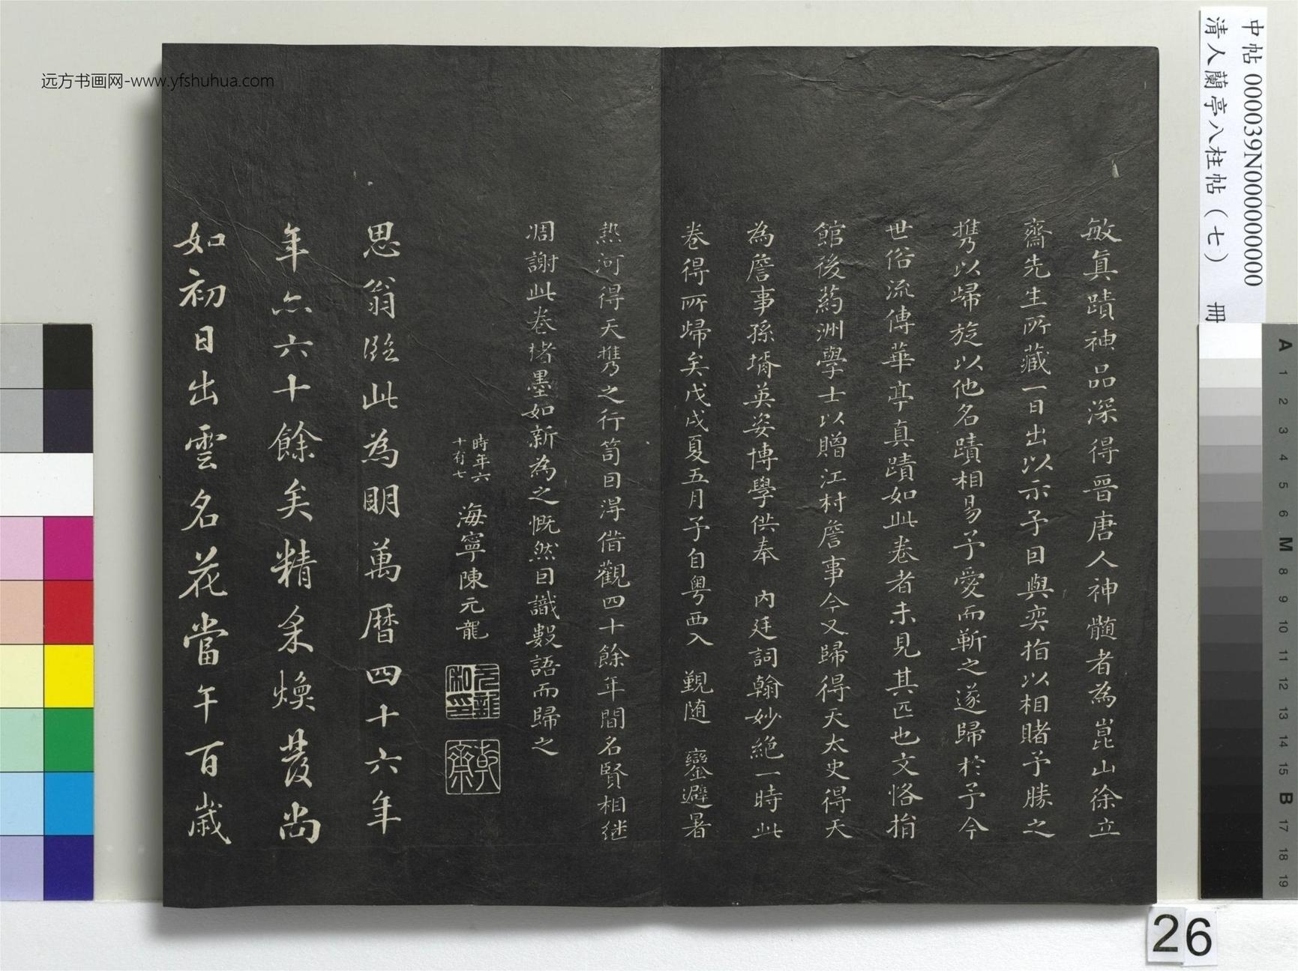 中帖 000039N000000000
清人蘭亭八柱帖（七） 冊
远方书画网-www.yfshuhua.com
敏真蹟神品深得晉唐人神髓者為崑山徐立
齋先生所藏一日出以示予曰與奕指以相賭予勝之
攜以歸旋以他名蹟相易予愛而靳之遂歸於予今
世俗流傳華亭真蹟如此卷者未見其匹也文恪捐
館後葯洲學士以贈江村詹事今又歸得天太史得天
為詹事孫壻英姿博學供奉 內廷詞翰妙絕一時此
卷得所歸矣戊戌夏五月予自粵西入 覲随 鑾避暑
熱河得天攜之行笥因得借觀四十餘年間名賢相继
凋謝此卷楮墨如新為之慨然因識數語而歸之
時年六
十有七
海寧陳元龍
元龍
私印
乾
齋
思翁臨此為明萬曆四十六年
年亦六十餘矣精采煥發尚
如初日出雲名花當午百歲
26
A 1 2 3 4 5 6 M 8 9 10 11 12 13 14 15 B 17 18 19